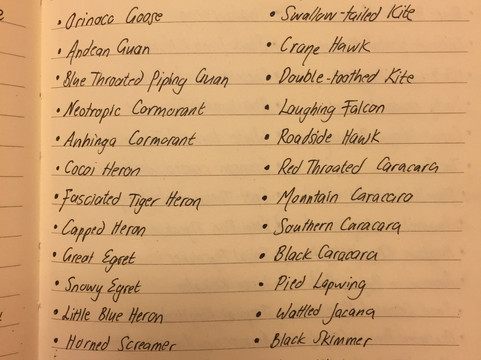 • Orinoco Goose
• Andean Guan
• Blue Throated Piping Guan
• Neotropic Cormorant
• Anhinga Cormorant
• Cocoi Heron
• Fasciated Tiger Heron
• Capped Heron
• Great Egret
• Snowy Egret
• Little Blue Heron
• Horned Screamer
• Swallow-tailed Kite
• Crane Hawk
• Double-toothed Kite
• Laughing Falcon
• Roadside Hawk
• Red Throated Caracara
• Mountain Caracara
• Southern Caracara
• Black Caracara
• Pied Lapwing
• Wattled Jacana
• Black Skimmer